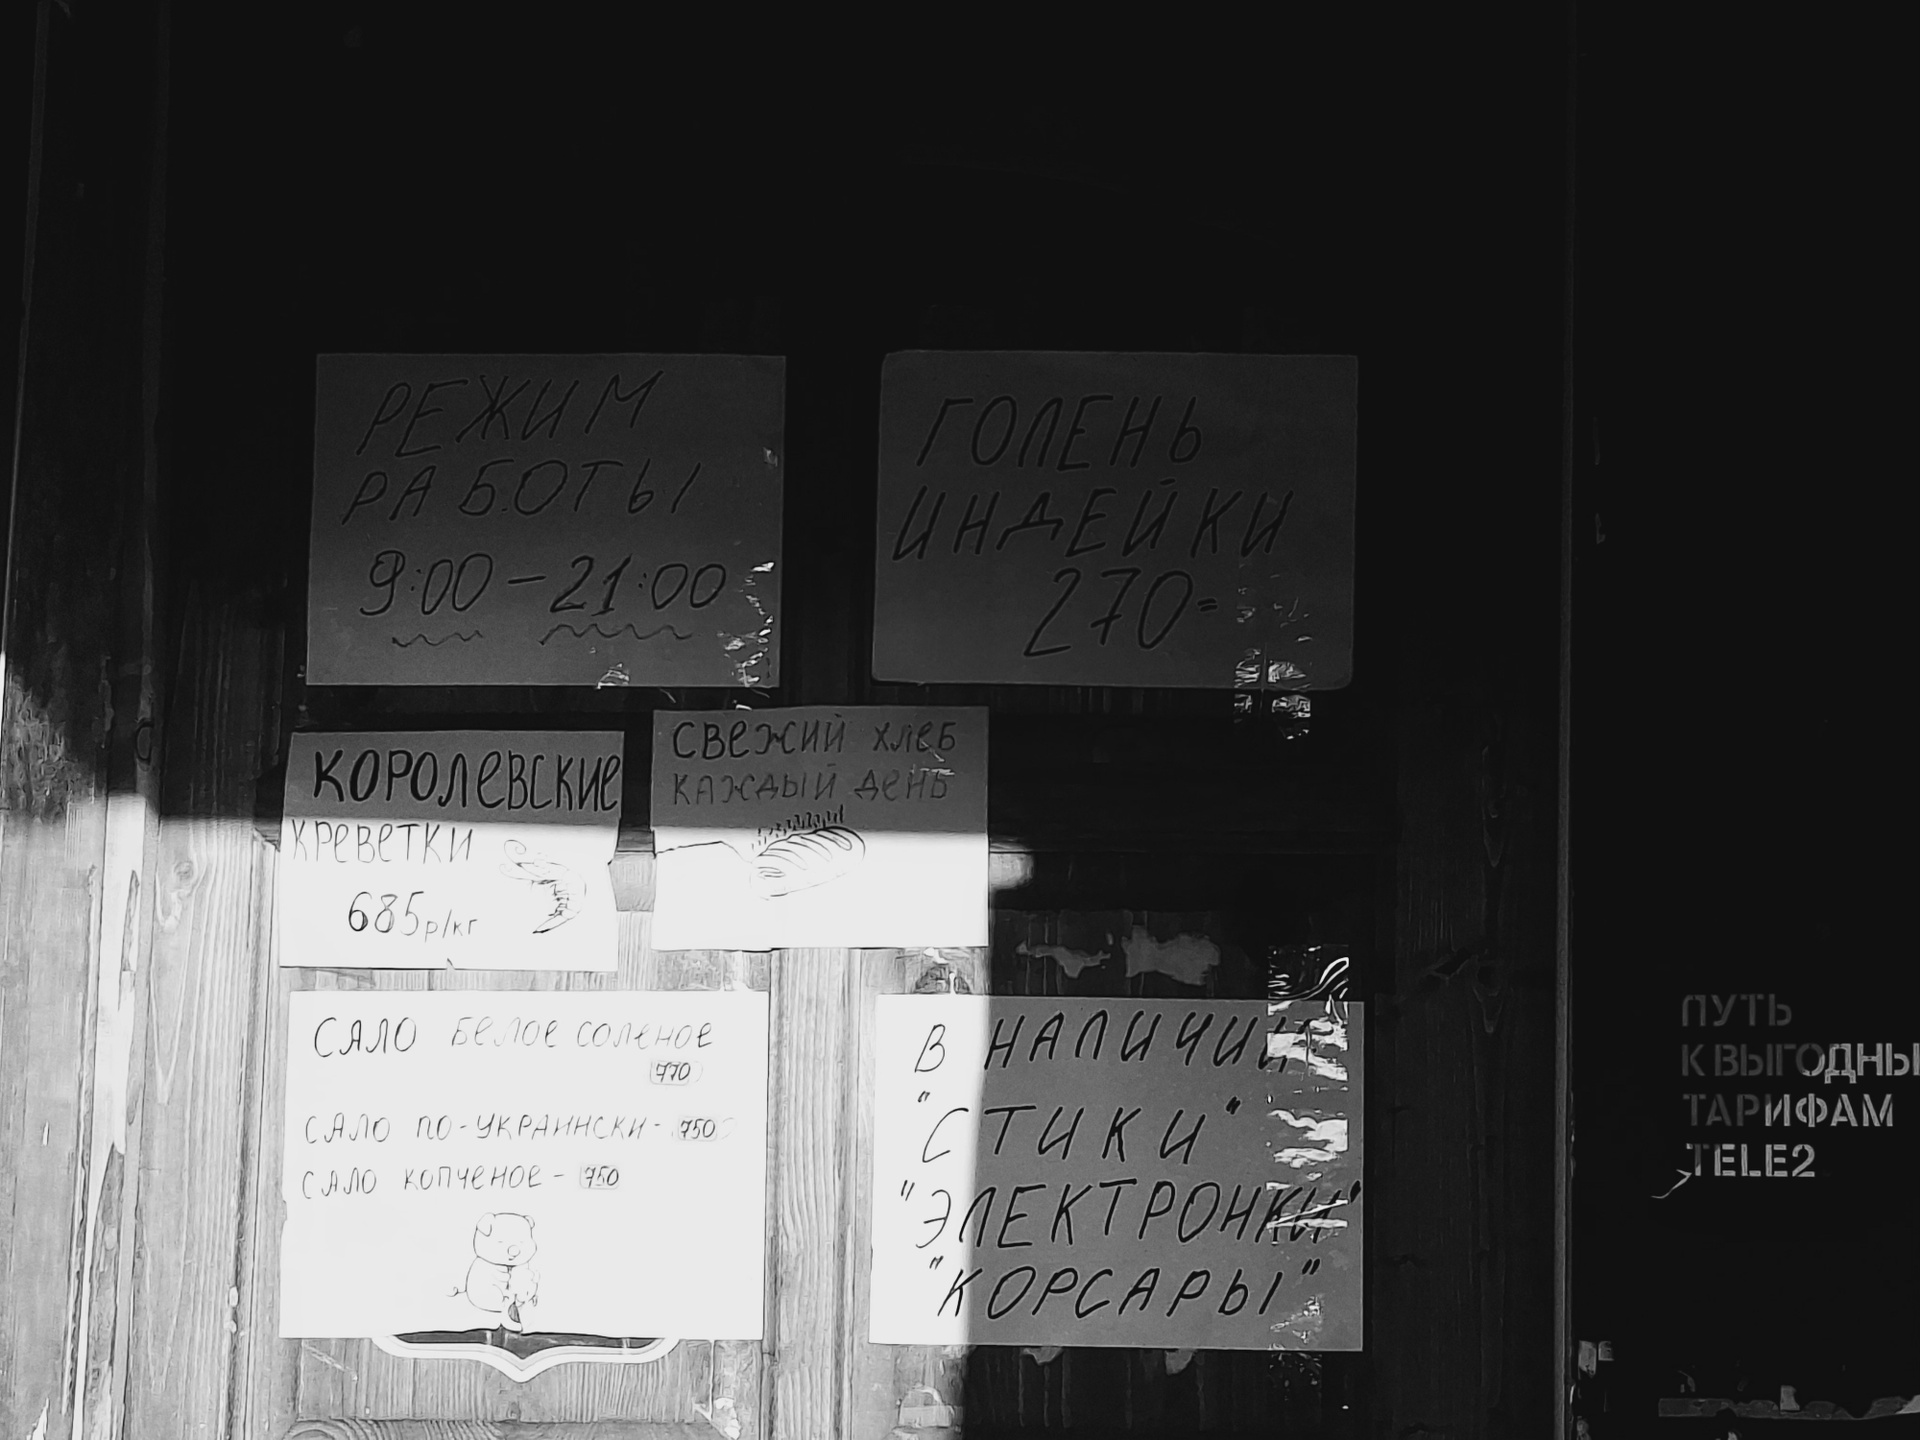 РЕЖИМ
РАБОТЫ
9:00 – 21:00
ГОЛЕНЬ
ИНДЕЙКИ
270=
КОРОЛЕВСКИЕ
КРЕВЕТКИ
685р/кг
СВЕЖИЙ ХЛЕБ
КАЖДЫЙ ДЕНЬ
САЛО БЕЛОЕ СОЛЕНОЕ
770
САЛО ПО-УКРАИНСКИ- 750
САЛО КОПЧЕНОЕ- 750
В НАЛИЧИИ
"СТИКИ"
"ЭЛЕКТРОНКИ"
"КОРСАРЫ"
ПУТЬ
К ВЫГОДНЫ
ТАРИФАМ
TELE2